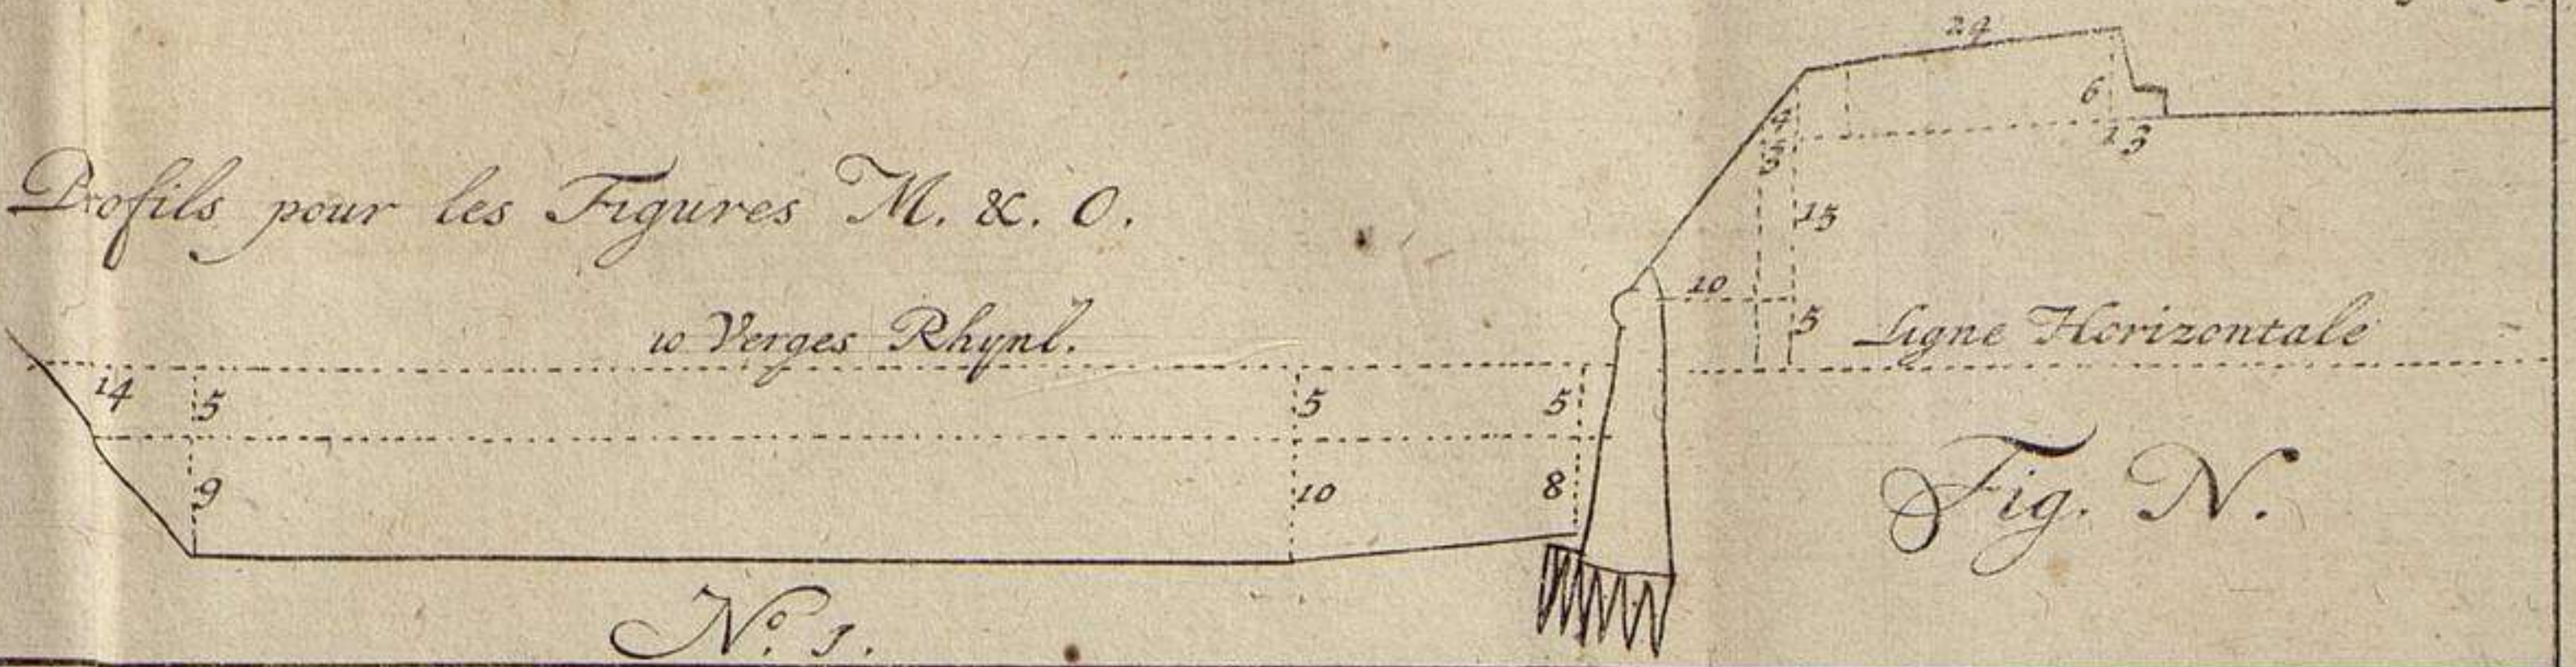 24
6
4
5
3
1 3
Profils pour les Figures M. &. O.
15
10
10 Verges Rhynl.
5 Ligne Horizontale
14 5 5 5
9 10 8
Fig. N.
N.º 1.